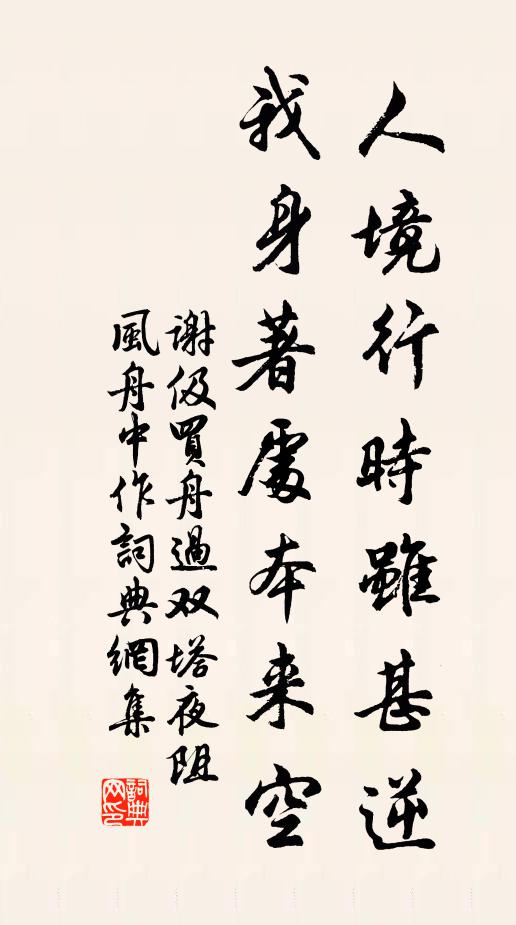 人境行時雖甚逆
我身著處本来空
謝伋買舟過双塔夜阻
風舟中作詞典網集
詞典网印